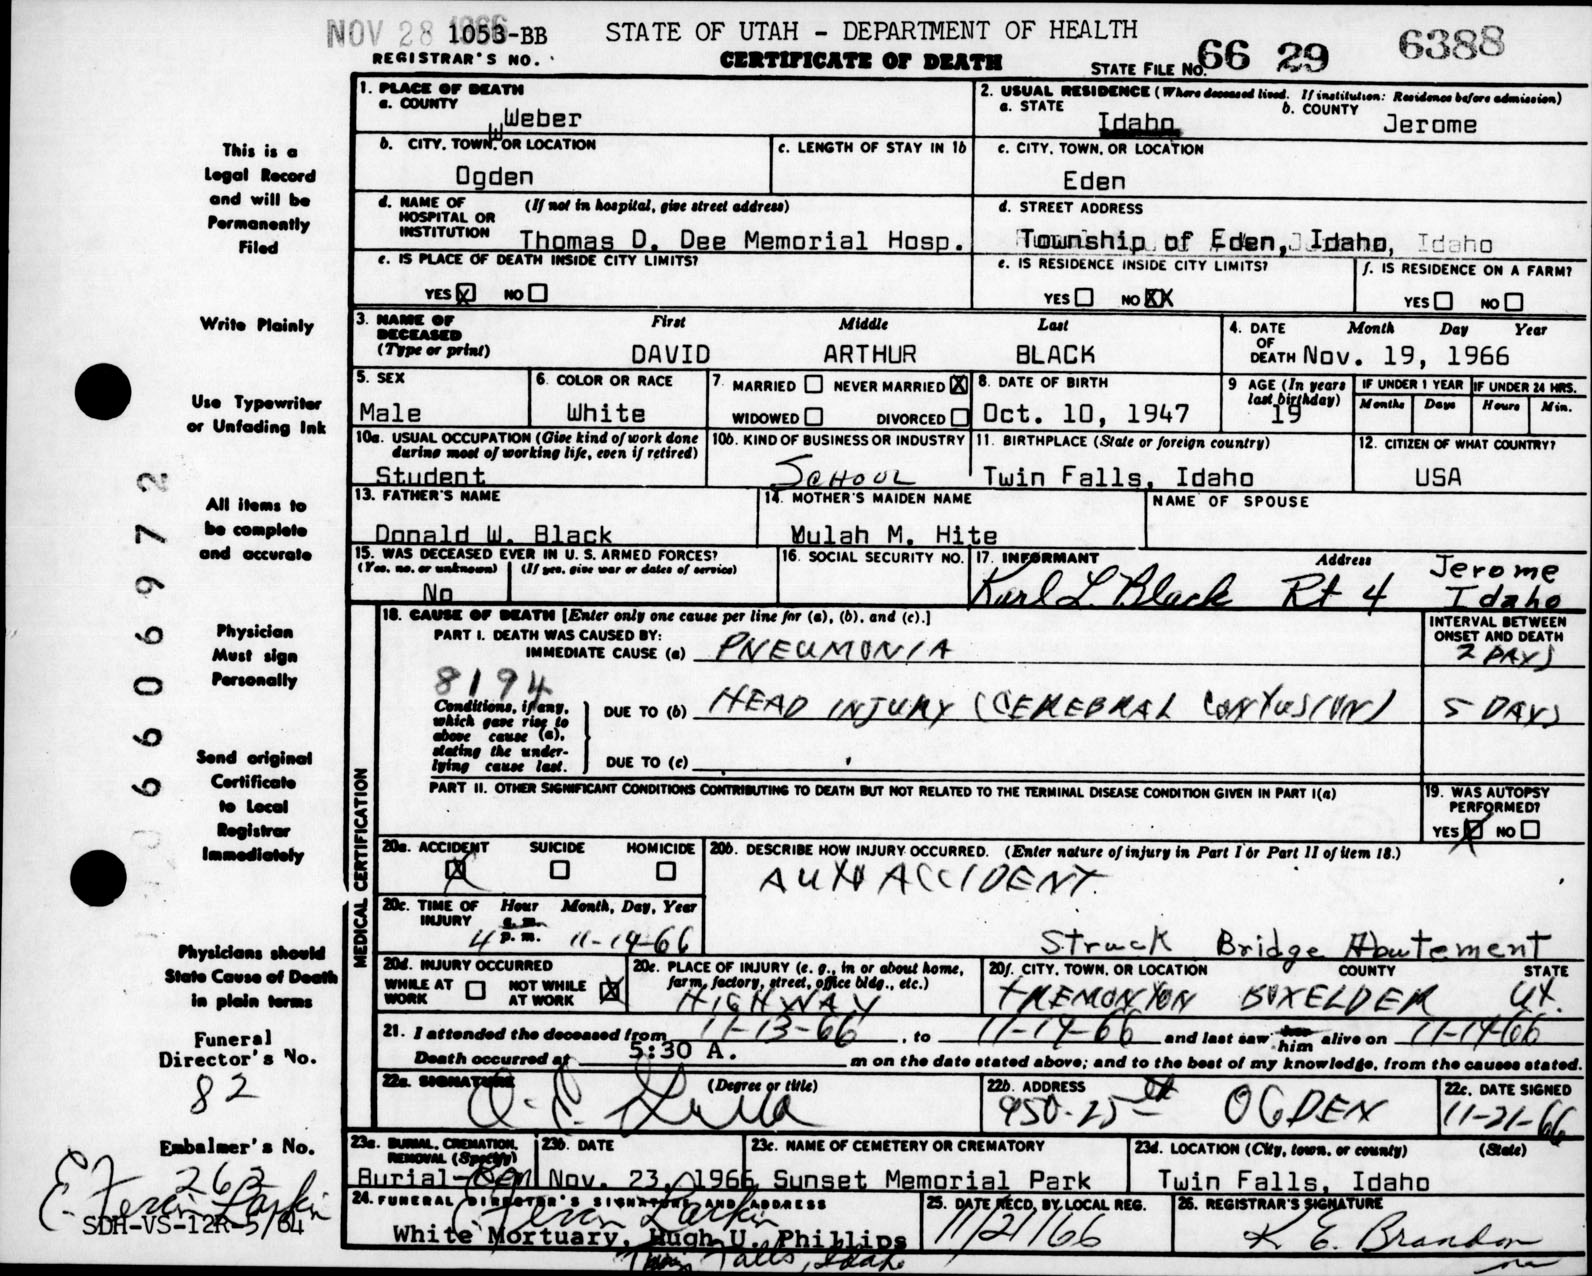 NOV 28 1966 1053-BB STATE OF UTAH - DEPARTMENT OF HEALTH
REGISTRAR'S NO. CERTIFICATE OF DEATH STATE FILE NO. 66 29 6388
1. PLACE OF DEATH
a. COUNTY
Weber
2. USUAL RESIDENCE (Where deceased lived. If institution: Residence before admission)
a. STATE b. COUNTY
Idaho Jerome
b. CITY, TOWN, OR LOCATION
Ogden
c. LENGTH OF STAY IN 1b
c. CITY, TOWN, OR LOCATION
Eden
d. NAME OF HOSPITAL OR INSTITUTION (If not in hospital, give street address)
Thomas D. Dee Memorial Hosp.
d. STREET ADDRESS
Township of Eden, Idaho, Idaho
e. IS PLACE OF DEATH INSIDE CITY LIMITS?
YES X NO
e. IS RESIDENCE INSIDE CITY LIMITS?
YES NO XX
f. IS RESIDENCE ON A FARM?
YES NO
3. NAME OF DECEASED (Type or print) First Middle Last
DAVID ARTHUR BLACK
4. DATE OF DEATH Month Day Year
Nov. 19, 1966
5. SEX
Male
6. COLOR OR RACE
White
7. MARRIED NEVER MARRIED X
WIDOWED DIVORCED
8. DATE OF BIRTH
Oct. 10, 1947
9 AGE (In years last birthday)
19
IF UNDER 1 YEAR
Months Days
IF UNDER 24 HRS.
Hours Min.
10a. USUAL OCCUPATION (Give kind of work done during most of working life, even if retired)
Student
10b. KIND OF BUSINESS OR INDUSTRY
SCHOOL
11. BIRTHPLACE (State or foreign country)
Twin Falls, Idaho
12. CITIZEN OF WHAT COUNTRY?
USA
13. FATHER'S NAME
Donald W. Black
14. MOTHER'S MAIDEN NAME
Yulah M. Hite
NAME OF SPOUSE
15. WAS DECEASED EVER IN U. S. ARMED FORCES?
(Yes, no, or unknown) (If yes, give war or dates of service)
No
16. SOCIAL SECURITY NO.
17. INFORMANT Address
Karl L. Black Rt 4 Jerome Idaho
18. CAUSE OF DEATH [Enter only one cause per line for (a), (b), and (c).]
INTERVAL BETWEEN ONSET AND DEATH
PART I. DEATH WAS CAUSED BY:
IMMEDIATE CAUSE (a) PNEUMONIA 2 DAYS
8194
Conditions, if any, which gave rise to above cause (a), stating the underlying cause last.
DUE TO (b) HEAD INJURY (CEREBRAL CONTUSION) 5 DAYS
DUE TO (c)
PART II. OTHER SIGNIFICANT CONDITIONS CONTRIBUTING TO DEATH BUT NOT RELATED TO THE TERMINAL DISEASE CONDITION GIVEN IN PART I(a)
19. WAS AUTOPSY PERFORMED?
YES X NO
MEDICAL CERTIFICATION
20a. ACCIDENT SUICIDE HOMICIDE
X
20b. DESCRIBE HOW INJURY OCCURRED. (Enter nature of injury in Part I or Part II of item 18.)
AUTO ACCIDENT
Struck Bridge Abutement
20c. TIME OF INJURY Hour Month, Day, Year
a. m.
4 p. m. 11-14-66
20d. INJURY OCCURRED
WHILE AT WORK NOT WHILE AT WORK X
20e. PLACE OF INJURY (e. g., in or about home, farm, factory, street, office bldg., etc.)
HIGHWAY
20f. CITY, TOWN, OR LOCATION COUNTY STATE
TREMONTON BOXELDER UT.
21. I attended the deceased from 11-13-66, to 11-19-66 and last saw him alive on 11-19-66
Death occurred at 5:30 A. m on the date stated above; and to the best of my knowledge, from the causes stated.
22a. SIGNATURE (Degree or title)
22b. ADDRESS
950-25th OGDEN
22c. DATE SIGNED
11-21-66
23a. BURIAL, CREMATION, REMOVAL (Specify)
Burial-Rem
23b. DATE
Nov. 23, 1966
23c. NAME OF CEMETERY OR CREMATORY
Sunset Memorial Park
23d. LOCATION (City, town, or county) (State)
Twin Falls, Idaho
24. FUNERAL DIRECTOR'S SIGNATURE AND ADDRESS
E. Ferrin Larkin
White Mortuary, Hugh U. Phillips
Twin Falls, Idaho
25. DATE REC'D. BY LOCAL REG.
11/21/66
26. REGISTRAR'S SIGNATURE
K E. Brandon
This is a
Legal Record
and will be
Permanently
Filed
Write Plainly
Use Typewriter
or Unfading Ink
All items to
be complete
and accurate
Physician
Must sign
Personally
Send original
Certificate
to Local
Registrar
Immediately
Physicians should
State Cause of Death
in plain terms
Funeral
Director's No.
82
Embalmer's No.
263
E. Ferrin Larkin
SDH-VS-12R-5/64
6606972